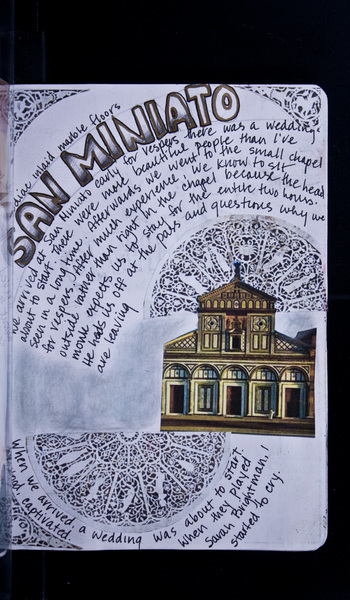 zodiac inlaid marble floors
SAN MINIATO
we arrived at San Miniato early for vespers there was a wedding
about to start. there were more beautiful people than I've
seen in a long time. Afterwards we went to the small chapel
for vespers. After much experience we know to sit
outside rather than right in the chapel because the head
monk expects us to stay for the entire two hours.
He hoots us off at the pass and questions why we
are leaving
When we arrived a wedding was about to start
and captivated when they played
Sarah Brightman. I
started to cry.